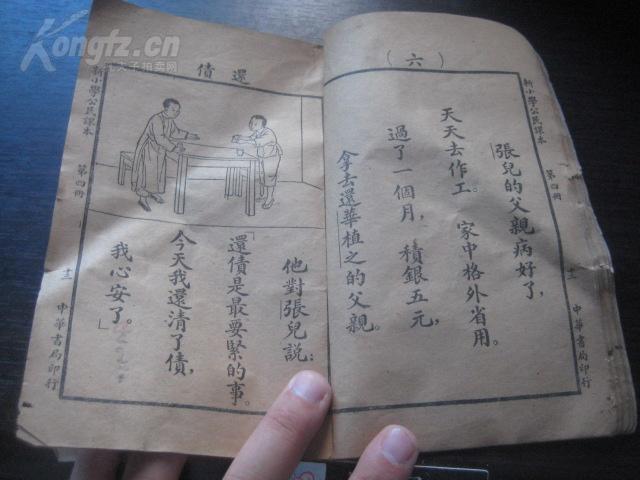 Kongfz.cn
孔夫子拍卖网
（六）
新小學公民課本
第四冊
十二
中華書局印行
張兒的父親病好了，
天天去作工。家中格外省用。
過了一個月，積銀五元，
拿去還華植之的父親。
還債
他對張兒說：
「還債是最要緊的事。
今天我還清了債，
我心安了。」
新小學公民課本
第四冊
十二
中華書局印行